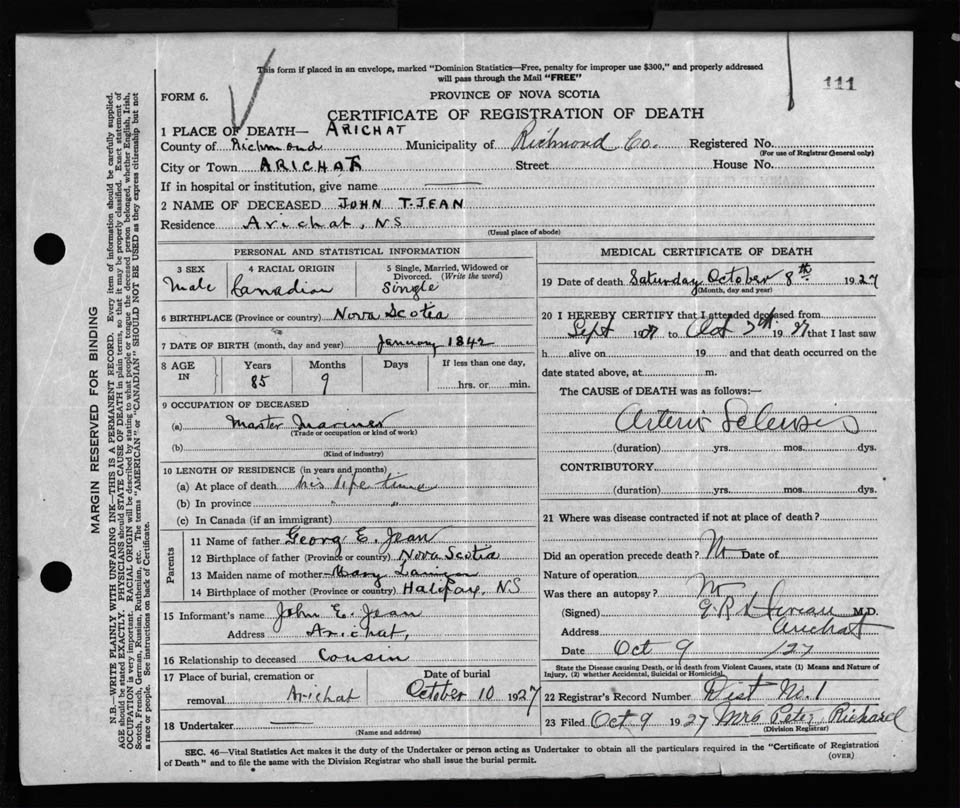 This form if placed in an envelope, marked "Dominion Statistics—Free, penalty for improper use $300," and properly addressed
will pass through the Mail "FREE"
111
FORM 6.
PROVINCE OF NOVA SCOTIA
CERTIFICATE OF REGISTRATION OF DEATH
1 PLACE OF DEATH— ARICHAT
County of Richmond Municipality of Richmond Co. Registered No.
(For use of Registrar General only)
City or Town ARICHAT Street House No.
If in hospital or institution, give name
2 NAME OF DECEASED JOHN T. JEAN
Residence Arichat, NS
(Usual place of abode)
PERSONAL AND STATISTICAL INFORMATION
3 SEX 4 RACIAL ORIGIN 5 Single, Married, Widowed or
Divorced. (Write the word)
Male Canadian Single
6 BIRTHPLACE (Province or country) Nova Scotia
7 DATE OF BIRTH (month, day and year) January 1842
8 AGE IN Years Months Days If less than one day,
85 9 hrs. or min.
9 OCCUPATION OF DECEASED
(a) Master Mariner
(Trade or occupation or kind of work)
(b)
(Kind of industry)
10 LENGTH OF RESIDENCE (in years and months)
(a) At place of death his life time
(b) In province " "
(c) In Canada (if an immigrant)
Parents
11 Name of father George E. Jean
12 Birthplace of father (Province or country) Nova Scotia
13 Maiden name of mother Mary
14 Birthplace of mother (Province or country) Halifax, NS
15 Informant's name John E. Jean
Address Arichat,
16 Relationship to deceased Cousin
17 Place of burial, cremation or removal Arichat Date of burial October 10 1927
18 Undertaker
(Name and address)
MEDICAL CERTIFICATE OF DEATH
19 Date of death Saturday October 8th 1927
(Month, day and year)
20 I HEREBY CERTIFY that I attended deceased from
Sept 1927 to Oct 7th 1927 that I last saw
h alive on 19 and that death occurred on the
date stated above, at m.
The CAUSE of DEATH was as follows:—
Arterio Sclerosis
(duration) yrs. mos. dys.
CONTRIBUTORY
(duration) yrs. mos. dys.
21 Where was disease contracted if not at place of death?
Did an operation precede death? No Date of
Nature of operation
Was there an autopsy? No
(Signed) M.D.
Address Arichat
Date Oct 9 /27
State the Disease causing Death, or in death from Violent Causes, state (1) Means and Nature of
Injury, (2) whether Accidental, Suicidal or Homicidal.
22 Registrar's Record Number Dist No. 1
23 Filed Oct 9 1927 Mrs Peter Richard
(Division Registrar)
SEC. 46—Vital Statistics Act makes it the duty of the Undertaker or person acting as Undertaker to obtain all the particulars required in the "Certificate of Registration
of Death" and to file the same with the Division Registrar who shall issue the burial permit.
(OVER)
MARGIN RESERVED FOR BINDING
N.B.—WRITE PLAINLY WITH UNFADING INK—THIS IS A PERMANENT RECORD. Every item of information should be carefully supplied.
AGE should be stated EXACTLY. PHYSICIANS should STATE CAUSE OF DEATH in plain terms, so that it may be properly classified. Exact statement of
OCCUPATION is very important. RACIAL ORIGIN will be described by stating to what people or tongue the deceased person belonged, whether English, Irish,
Scotch, French, German, Russian, Ruthenian, etc. The terms "AMERICAN" or "CANADIAN" SHOULD NOT BE USED as they express citizenship but not
a race or people. See instructions on back of Certificate.